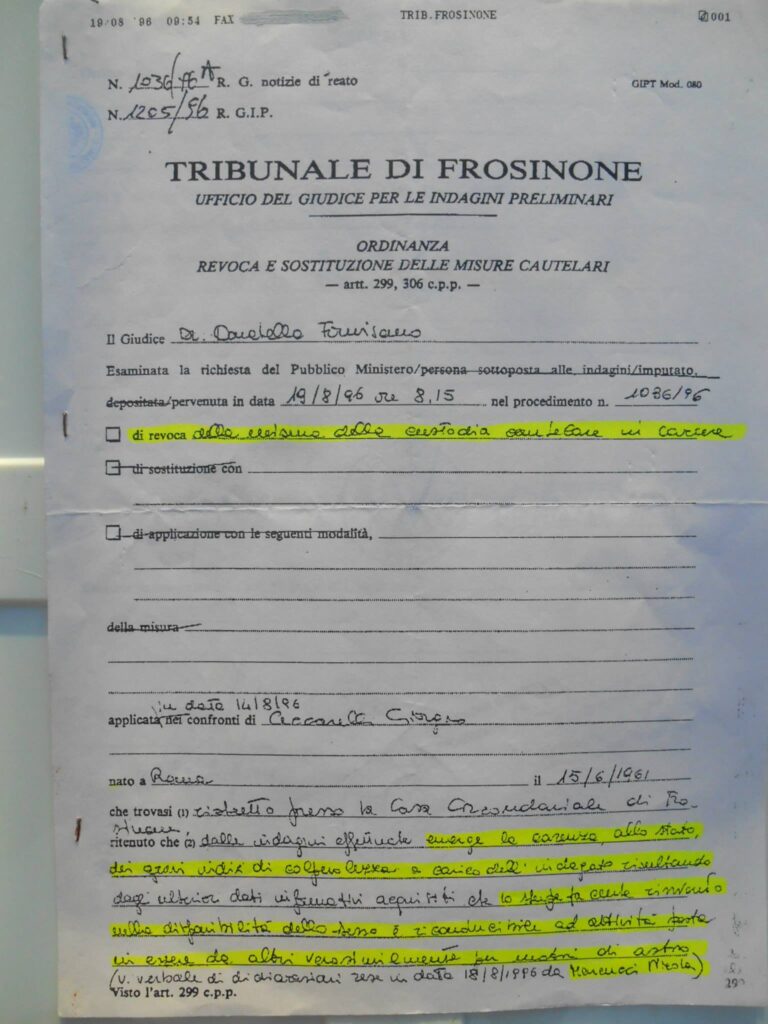 19/08 '96 09:54 FAX TRIB.FROSINONE 001
N. 1036/96 A R. G. notizie di reato GIPT Mod. 080
N. 1205/96 R. G.I.P.
TRIBUNALE DI FROSINONE
UFFICIO DEL GIUDICE PER LE INDAGINI PRELIMINARI
ORDINANZA
REVOCA E SOSTITUZIONE DELLE MISURE CAUTELARI
— artt. 299, 306 c.p.p. —
Il Giudice Dr. Donatella
Esaminata la richiesta del Pubblico Ministero/persona sottoposta alle indagini/imputato,
depositata/pervenuta in data 19/8/96 ore 8,15 nel procedimento n. 1036/96
di revoca della misura della custodia cautelare in carcere
di sostituzione con
di applicazione con le seguenti modalità,
della misura
in data 14/8/96
applicata nei confronti di Ceccarelli Giorgio
nato a Roma il 15/6/1961
che trovasi (1) ristretto presso la Casa Circondariale di Fro-
sinone
ritenuto che (2) dalle indagini effettuate emerge la carenza, allo stato,
dei gravi indizi di colpevolezza a carico dell'indagato risultando
dagli ulteriori dati informativi acquisiti che lo stupefacente rinvenuto
nella disponibilità dello stesso è riconducibile ad attività posta
in essere da altri verosimilmente per motivi di astio
(v. verbale di dichiarazioni rese in data 18/8/1996 da Marcucci Nicola)
Visto l'art. 299 c.p.p.